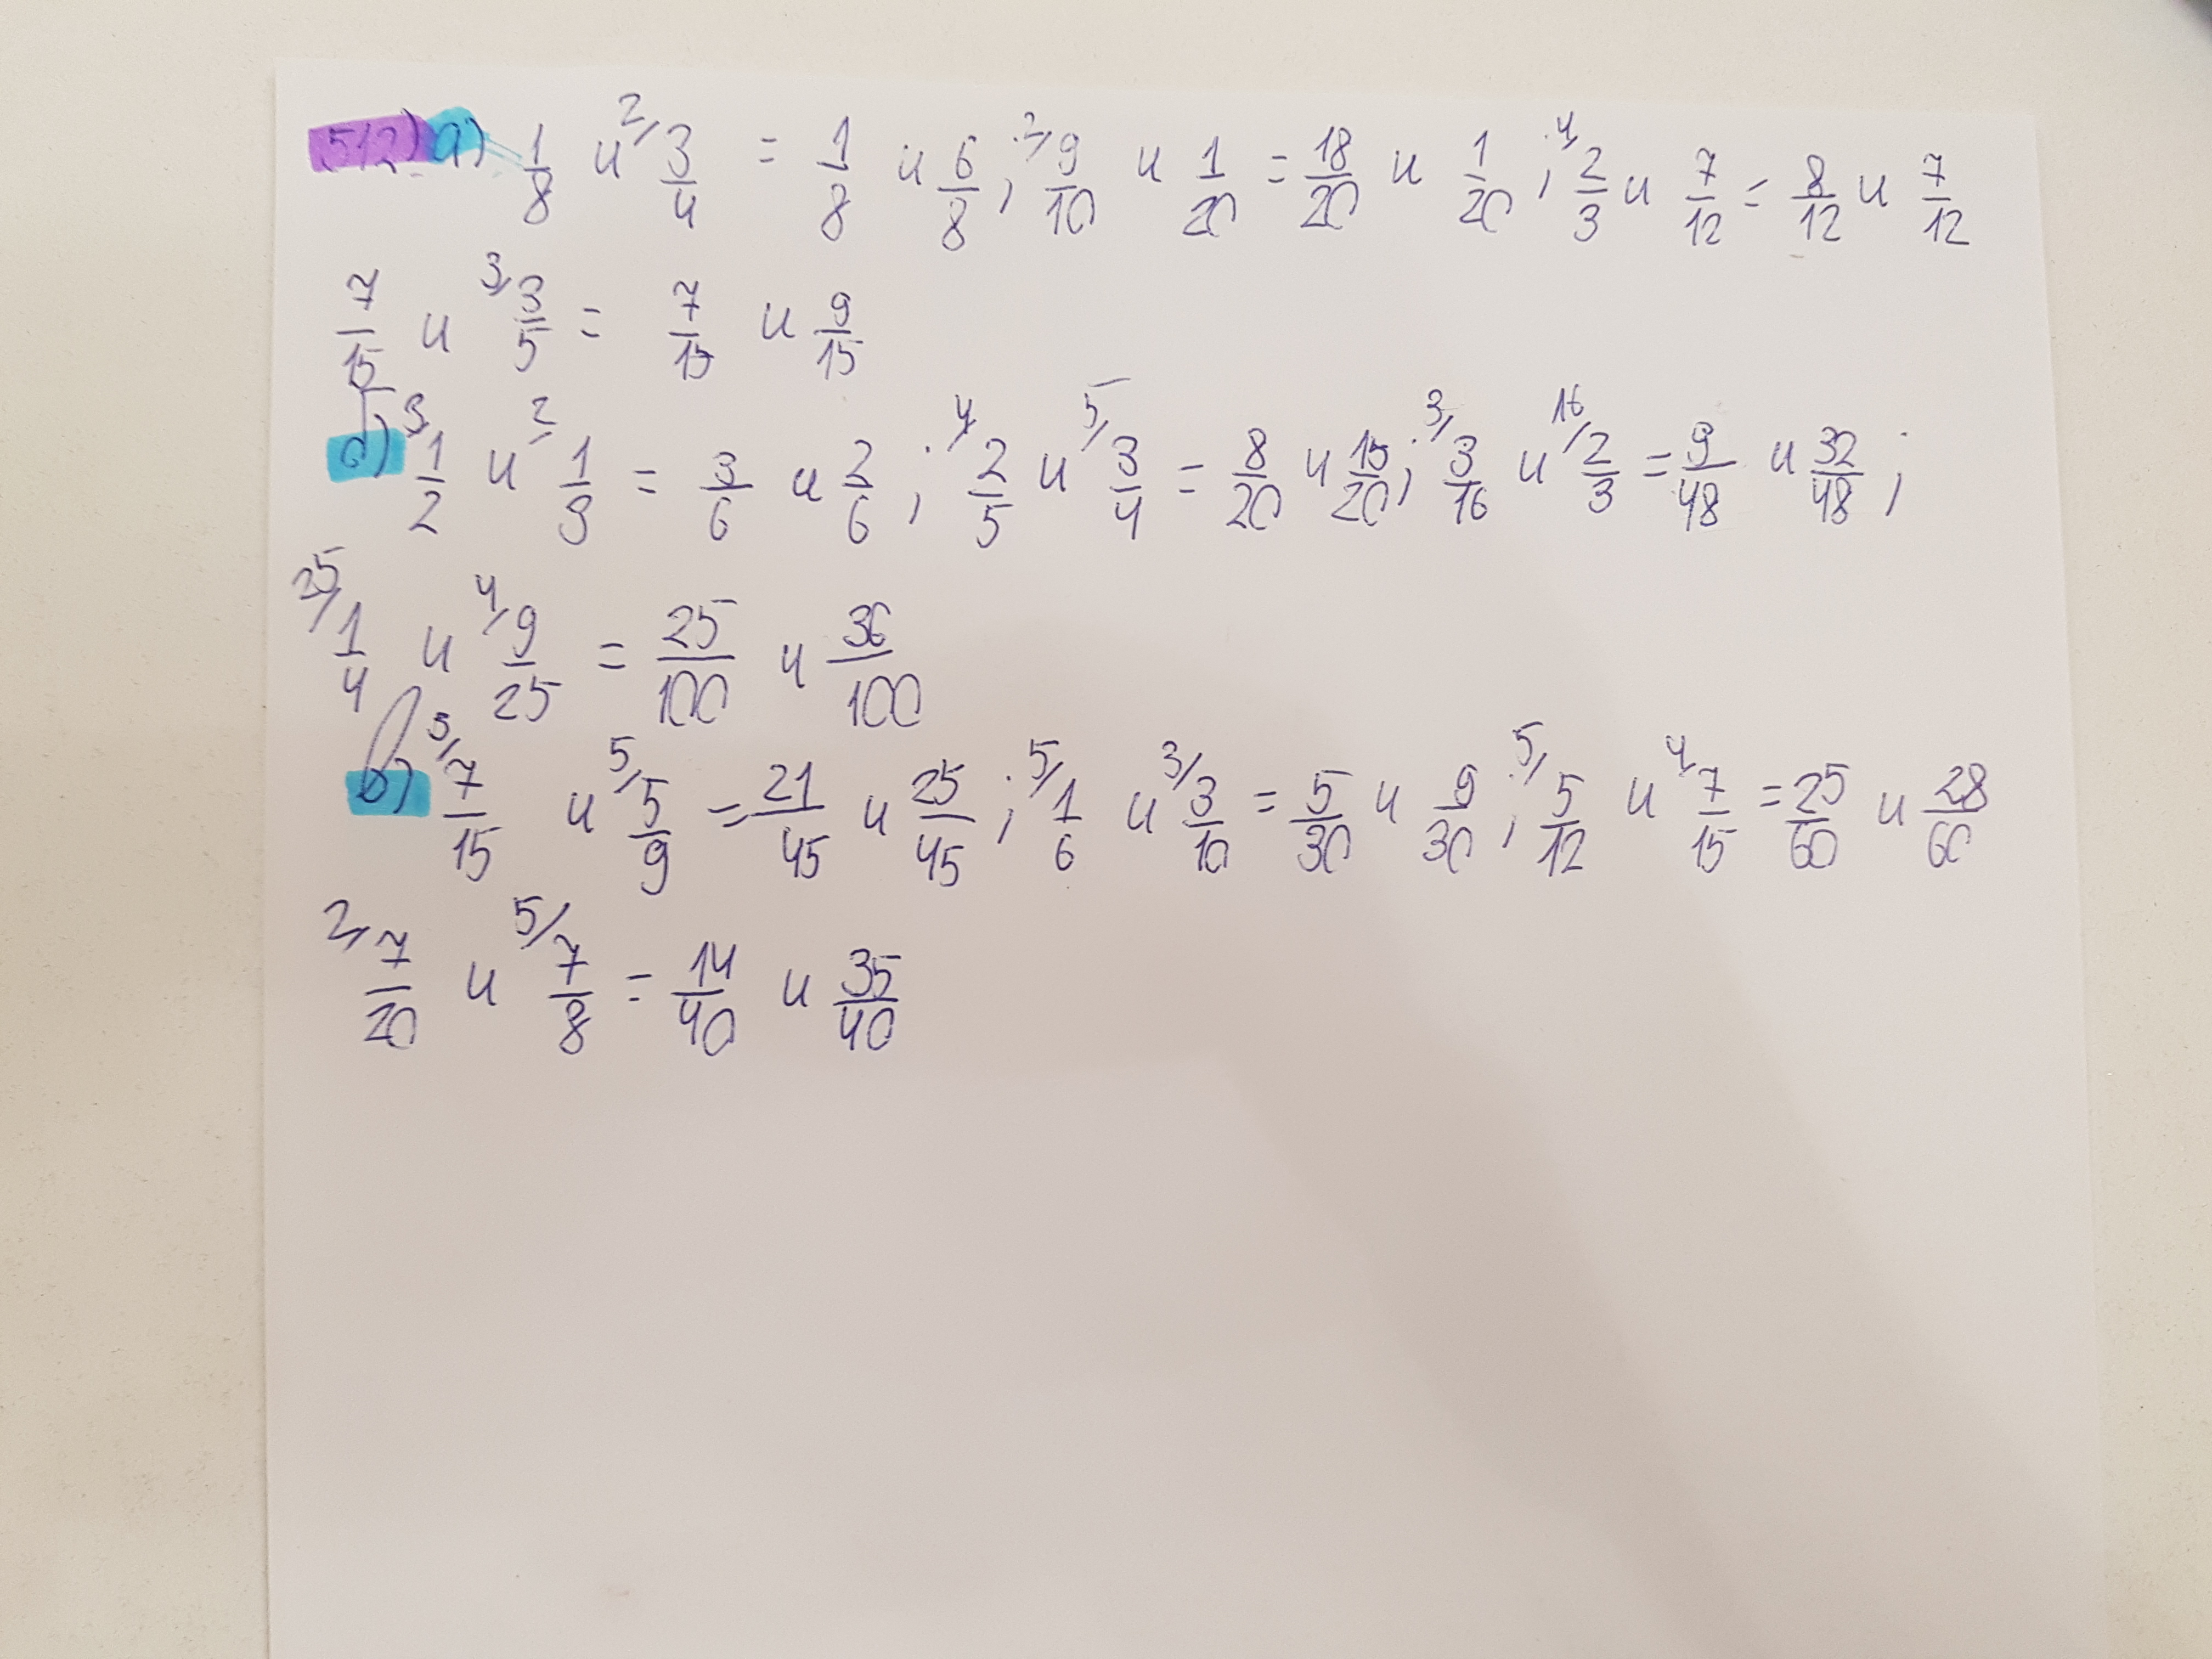 512) а) 1/8 и 2/ 3/4 = 1/8 и 6/8; 2/ 9/10 и 1/20 = 18/20 и 1/20; 4/ 2/3 и 7/12 = 8/12 и 7/12
7/15 и 3/ 3/5 = 7/15 и 9/15
б) 3/ 1/2 и 2/ 1/3 = 3/6 и 2/6; 4/ 2/5 и 5/ 3/4 = 8/20 и 15/20; 3/ 3/16 и 16/ 2/3 = 9/48 и 32/48;
25/ 1/4 и 4/ 9/25 = 25/100 и 36/100
в) 3/ 7/15 и 5/ 5/9 = 21/45 и 25/45; 5/ 1/6 и 3/ 3/10 = 5/30 и 9/30; 5/ 5/12 и 4/ 7/15 = 25/60 и 28/60
2/ 7/20 и 5/ 7/8 = 14/40 и 35/40